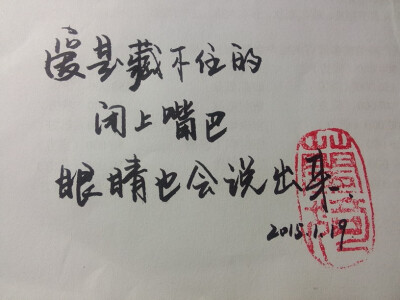 爱是藏不住的
闭上嘴巴
眼睛也会说出来
2015.1.19